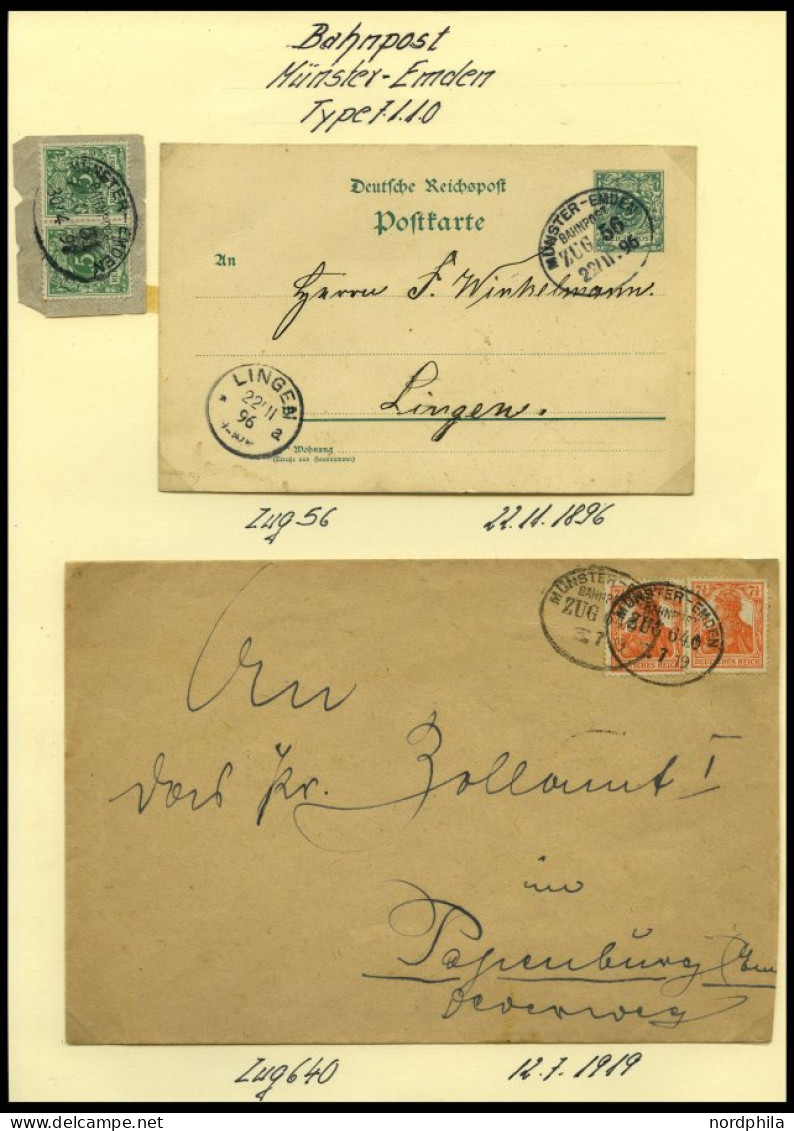 Bahnpost
Münster-Emden
Type 7.1.1.0
MÜNSTER-EMDEN
5
5
Deutsche Reichspost
Postkarte
MÜNSTER-EMDEN
BAHNPOST
ZUG 56
22/11.96
An
Herrn F. Winkelmann.
Lingen.
LINGEN
22/11
96
a
Wohnung
(Straße und Hausnummer)
Zug 56 22.11.1896
MÜNSTER-
ZUG
MÜNSTER-EMDEN
BAHNPOST
ZUG 640
7 19
7½
DEUTSCHES REICH
DEUTSCHES REICH
An
das Pr. Zollamt I
in
Papenburg Em
Deverweg
Zug 640 12.7.1919
www.delcampe.net
nordphila